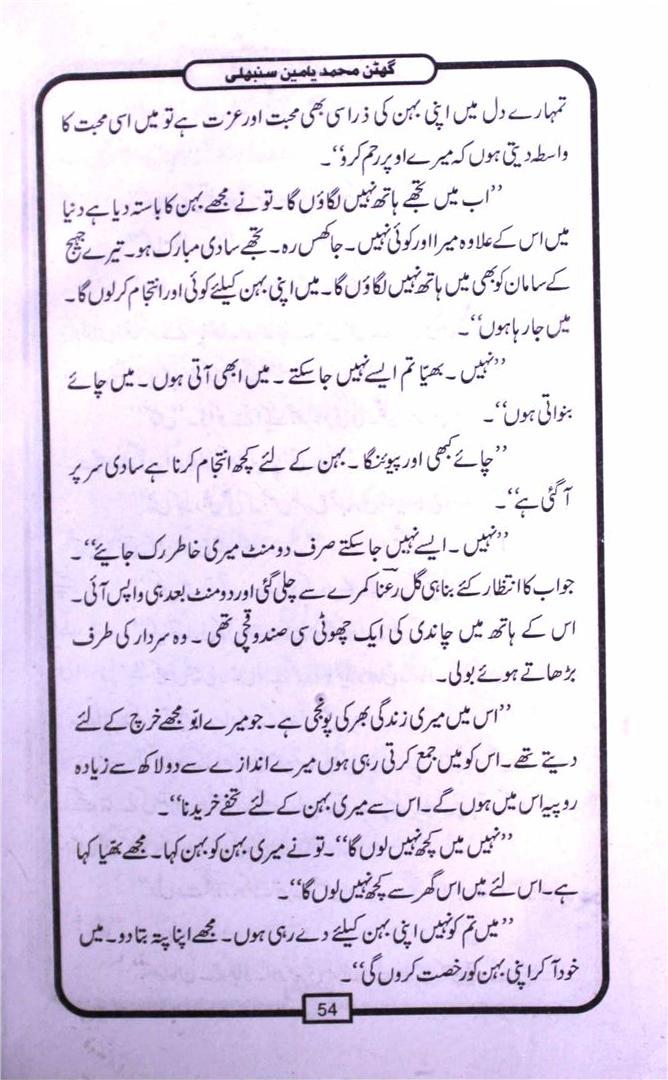 گھٹن محمد یامین سنبھلی
تمہارے دل میں اپنی بہن کی ذراسی بھی محبت اور عزت ہے تو میں اسی محبت کا
واسطہ دیتی ہوں کہ میرے اوپر رحم کرو‘‘۔
’’اب میں تجھے ہاتھ نہیں لگاؤں گا۔ تو نے مجھے بہن کا باستہ دیا ہے دنیا
میں اس کے علاوہ میرا اور کوئی نہیں۔ جا کھس رہ۔ تجھے سادی مبارک ہو۔ تیرے جہیج
کے سامان کو بھی میں ہاتھ نہیں لگاؤں گا۔ میں اپنی بہن کیلئے کوئی اور انتجام کرلوں گا۔
میں جارہا ہوں‘‘۔
’’نہیں۔ بھیّا تم ایسے نہیں جاسکتے۔ میں ابھی آتی ہوں۔ میں چائے
بنواتی ہوں‘‘۔
’’چائے کبھی اور پیوئنگا۔ بہن کے لئے کچھ انتجام کرنا ہے سادی سر پر
آگئی ہے‘‘۔
’’نہیں۔ ایسے نہیں جاسکتے صرف دو منٹ میری خاطر رک جائیے‘‘۔
جواب کا انتظار کئے بنا ہی گل رعنا کمرے سے چلی گئی اور دو منٹ بعد ہی واپس آئی۔
اس کے ہاتھ میں چاندی کی ایک چھوٹی سی صندوقچی تھی۔ وہ سردار کی طرف
بڑھاتے ہوئے بولی۔
’’اس میں میری زندگی بھر کی پونجی ہے۔ جو میرے ابّو مجھے خرچ کے لئے
دیتے تھے۔ اس کو میں جمع کرتی رہی ہوں میرے اندازے سے دولاکھ سے زیادہ
روپیہ اس میں ہوں گے۔ اس سے میری بہن کے لئے تحفے خریدنا‘‘۔
’’نہیں میں کچھ نہیں لوں گا‘‘۔ تو نے میری بہن کو بہن کہا۔ مجھے بھیا کہا
ہے۔ اس لئے میں اس گھر سے کچھ نہیں لوں گا‘‘۔
’’میں تم کو نہیں اپنی بہن کیلئے دے رہی ہوں۔ مجھے اپنا پتہ بتادو۔ میں
خود آکر اپنی بہن کو رخصت کروں گی‘‘۔
54